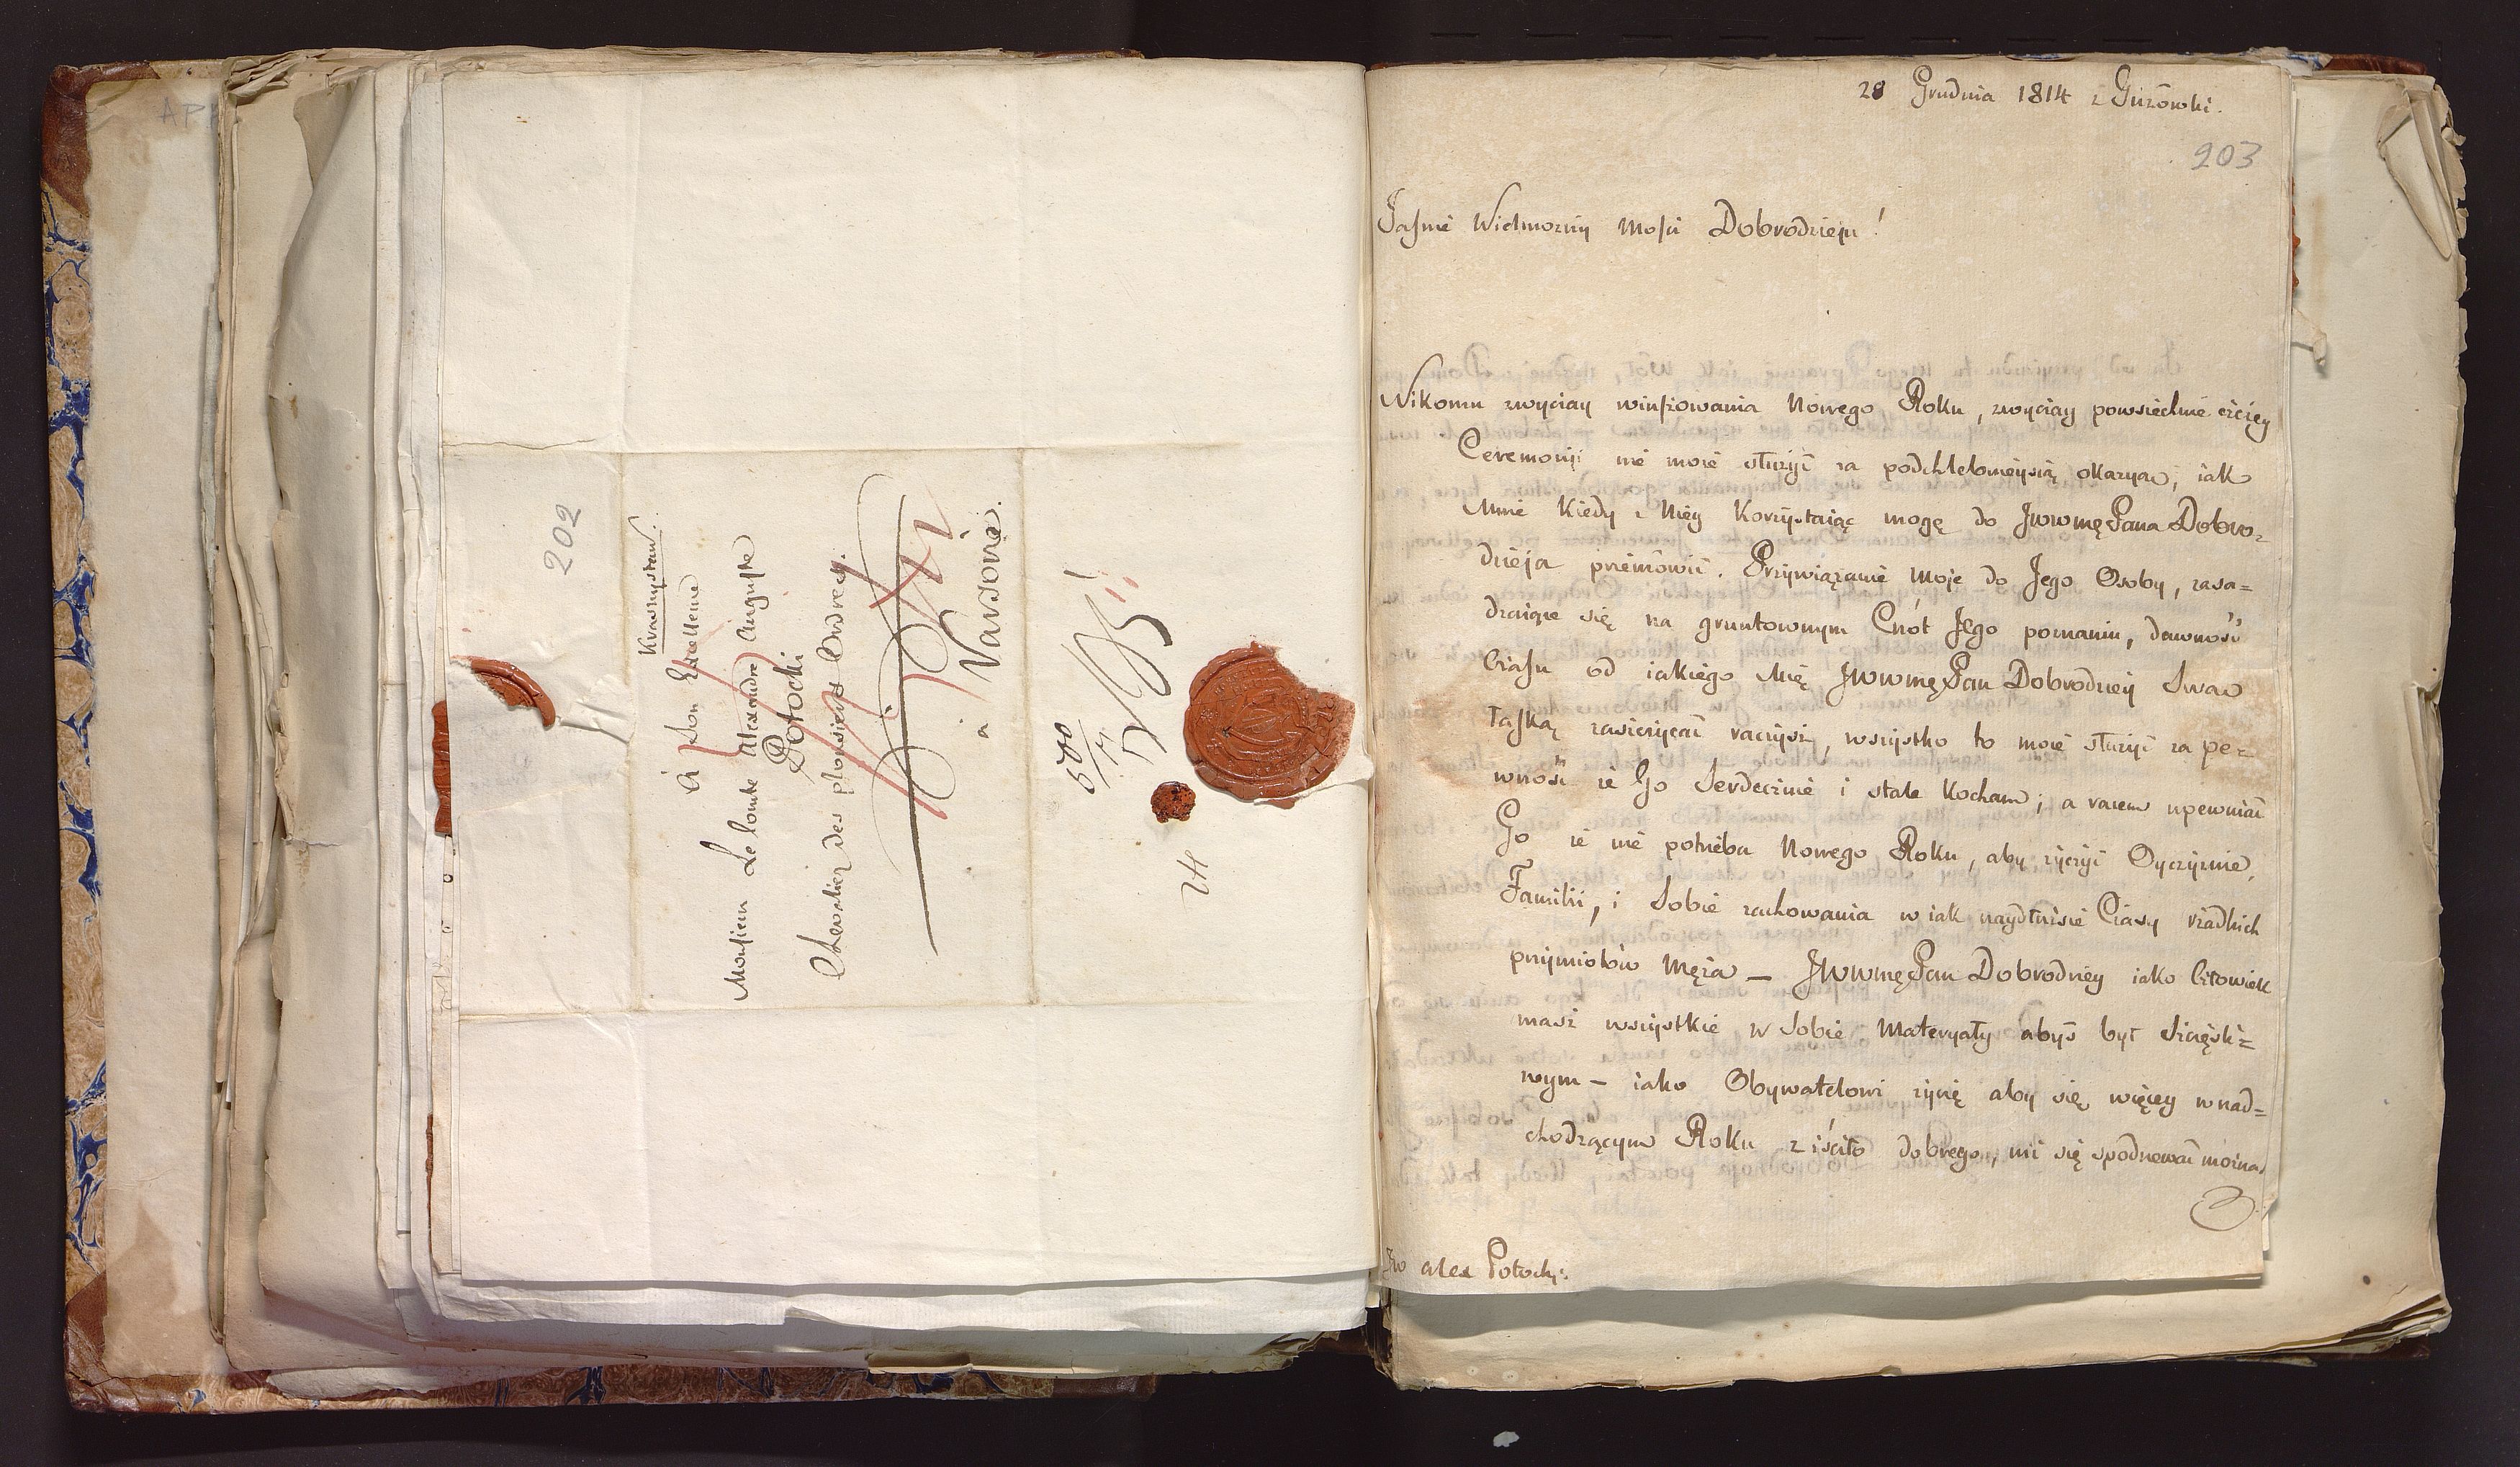 202
Krasnystaw.
à Son Excellence
Monsieur Le Comte Alexandre Auguste
Potocki
Chevalier des plusieurs Ordres.
à Varsovie.
24
28 Grudnia 1814 z Guzówki.
203
Jaśnie Wielmożny Mości Dobrodzieju!
Nikomu zwyczay winszowania Nowego Roku, zwyczay powszechnie czczey
Ceremonji nie może służyć za podchlebnieyszą okazyą; iak
Mnie kiedy z Niey korzystaiąc mogę do JWWmęPana Dobro=
dzieja przemówić. Przywiązanie Moje do Jego Osoby, zasa=
dzaiące się na gruntownym Cnót Jego poznaniu, dawność
Czasu od iakiego Mię JWWmęPan Dobrodziey Swą
łaską zaszczycać raczysz, wszystko to może służyć za pe=
wność że Go Serdecznie i stale Kocham; a razem upewniać
Go że nie potrzeba Nowego Roku, aby życzyć Oyczyznie,
Familii, i Sobie zachowania w iak naydłuższe Czasy rzadkich
przymiotów Męża — JWWmęPan Dobrodziey iako Człowiek
masz wszystkie w Sobie Materyały abyś był Szczęśli=
wym — iako Obywatelowi życzę aby się więcey w nad=
chodzącym Roku ziściło dobrego, niż się spodziewać można.
JW Alex Potocki.